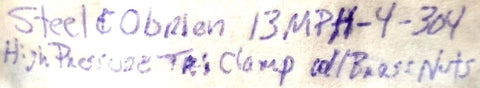 Steel & Obrien 13MPH-4-304
High Pressure Tri Clamp w/Brass Nuts